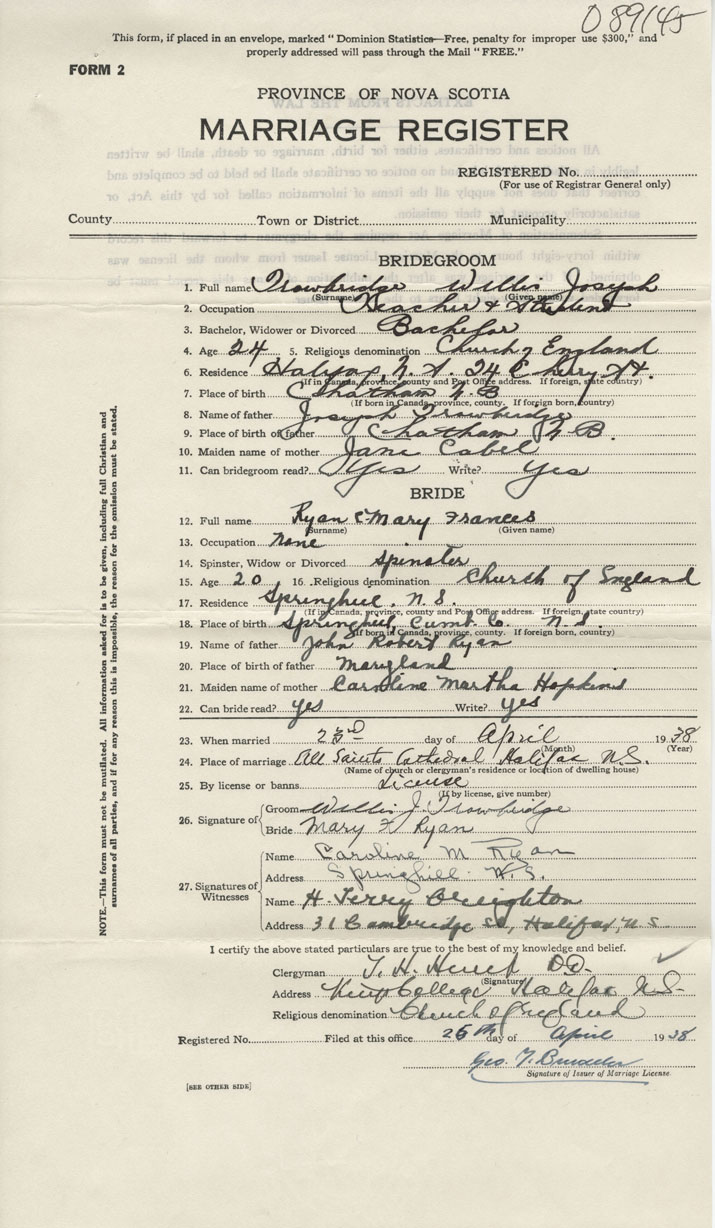 089145
This form, if placed in an envelope, marked "Dominion Statistics—Free, penalty for improper use $300," and
properly addressed will pass through the Mail "FREE."
FORM 2
PROVINCE OF NOVA SCOTIA
MARRIAGE REGISTER
REGISTERED No.
(For use of Registrar General only)
County Town or District Municipality
BRIDEGROOM
1. Full name Trowbridge Willis Joseph
(Surname) (Given name)
2. Occupation Teacher & Student
3. Bachelor, Widower or Divorced Bachelor
4. Age 24 5. Religious denomination Church of England
6. Residence Halifax, N.S. 24 Cherry St.
(If in Canada, province, county and Post Office address. If foreign, state country)
7. Place of birth Chatham N.B
(If born in Canada, province, county. If foreign born, country)
8. Name of father Joseph Trowbridge
9. Place of birth of father Chatham N.B.
10. Maiden name of mother Jane Cabel
11. Can bridegroom read? Yes Write? Yes
BRIDE
12. Full name Ryan Mary Frances
(Surname) (Given name)
13. Occupation None
14. Spinster, Widow or Divorced Spinster
15. Age 20 16. Religious denomination Church of England
17. Residence Springhill, N.S.
(If in Canada, province, county and Post Office address. If foreign, state country)
18. Place of birth Springhill, Cumb. Co. N.S.
(If born in Canada, province, county. If foreign born, country)
19. Name of father John Robert Ryan
20. Place of birth of father Maryland
21. Maiden name of mother Caroline Martha Hopkins
22. Can bride read? yes Write? yes
23. When married 23rd day of April 1938
(Month) (Year)
24. Place of marriage All Saints Cathedral Halifax N.S.
(Name of church or clergyman's residence or location of dwelling house)
25. By license or banns License
(If by license, give number)
26. Signature of
Groom Willis J. Trowbridge
Bride Mary F Ryan
27. Signatures of Witnesses
Name Caroline M Ryan
Address Springhill N.S.
Name H. Terry Creighton
Address 31 Cambridge St, Halifax, N.S.
I certify the above stated particulars are true to the best of my knowledge and belief.
Clergyman T. H. DD.
(Signature)
Address Kings College Halifax N.S.
Religious denomination Church of England
Registered No. Filed at this office 26th day of April 1938
Geo. T.
Signature of Issuer of Marriage License.
[SEE OTHER SIDE]
NOTE.—This form must not be mutilated. All information asked for is to be given, including full Christian and
surnames of all parties, and if for any reason this is impossible, the reason for the omission must be stated.